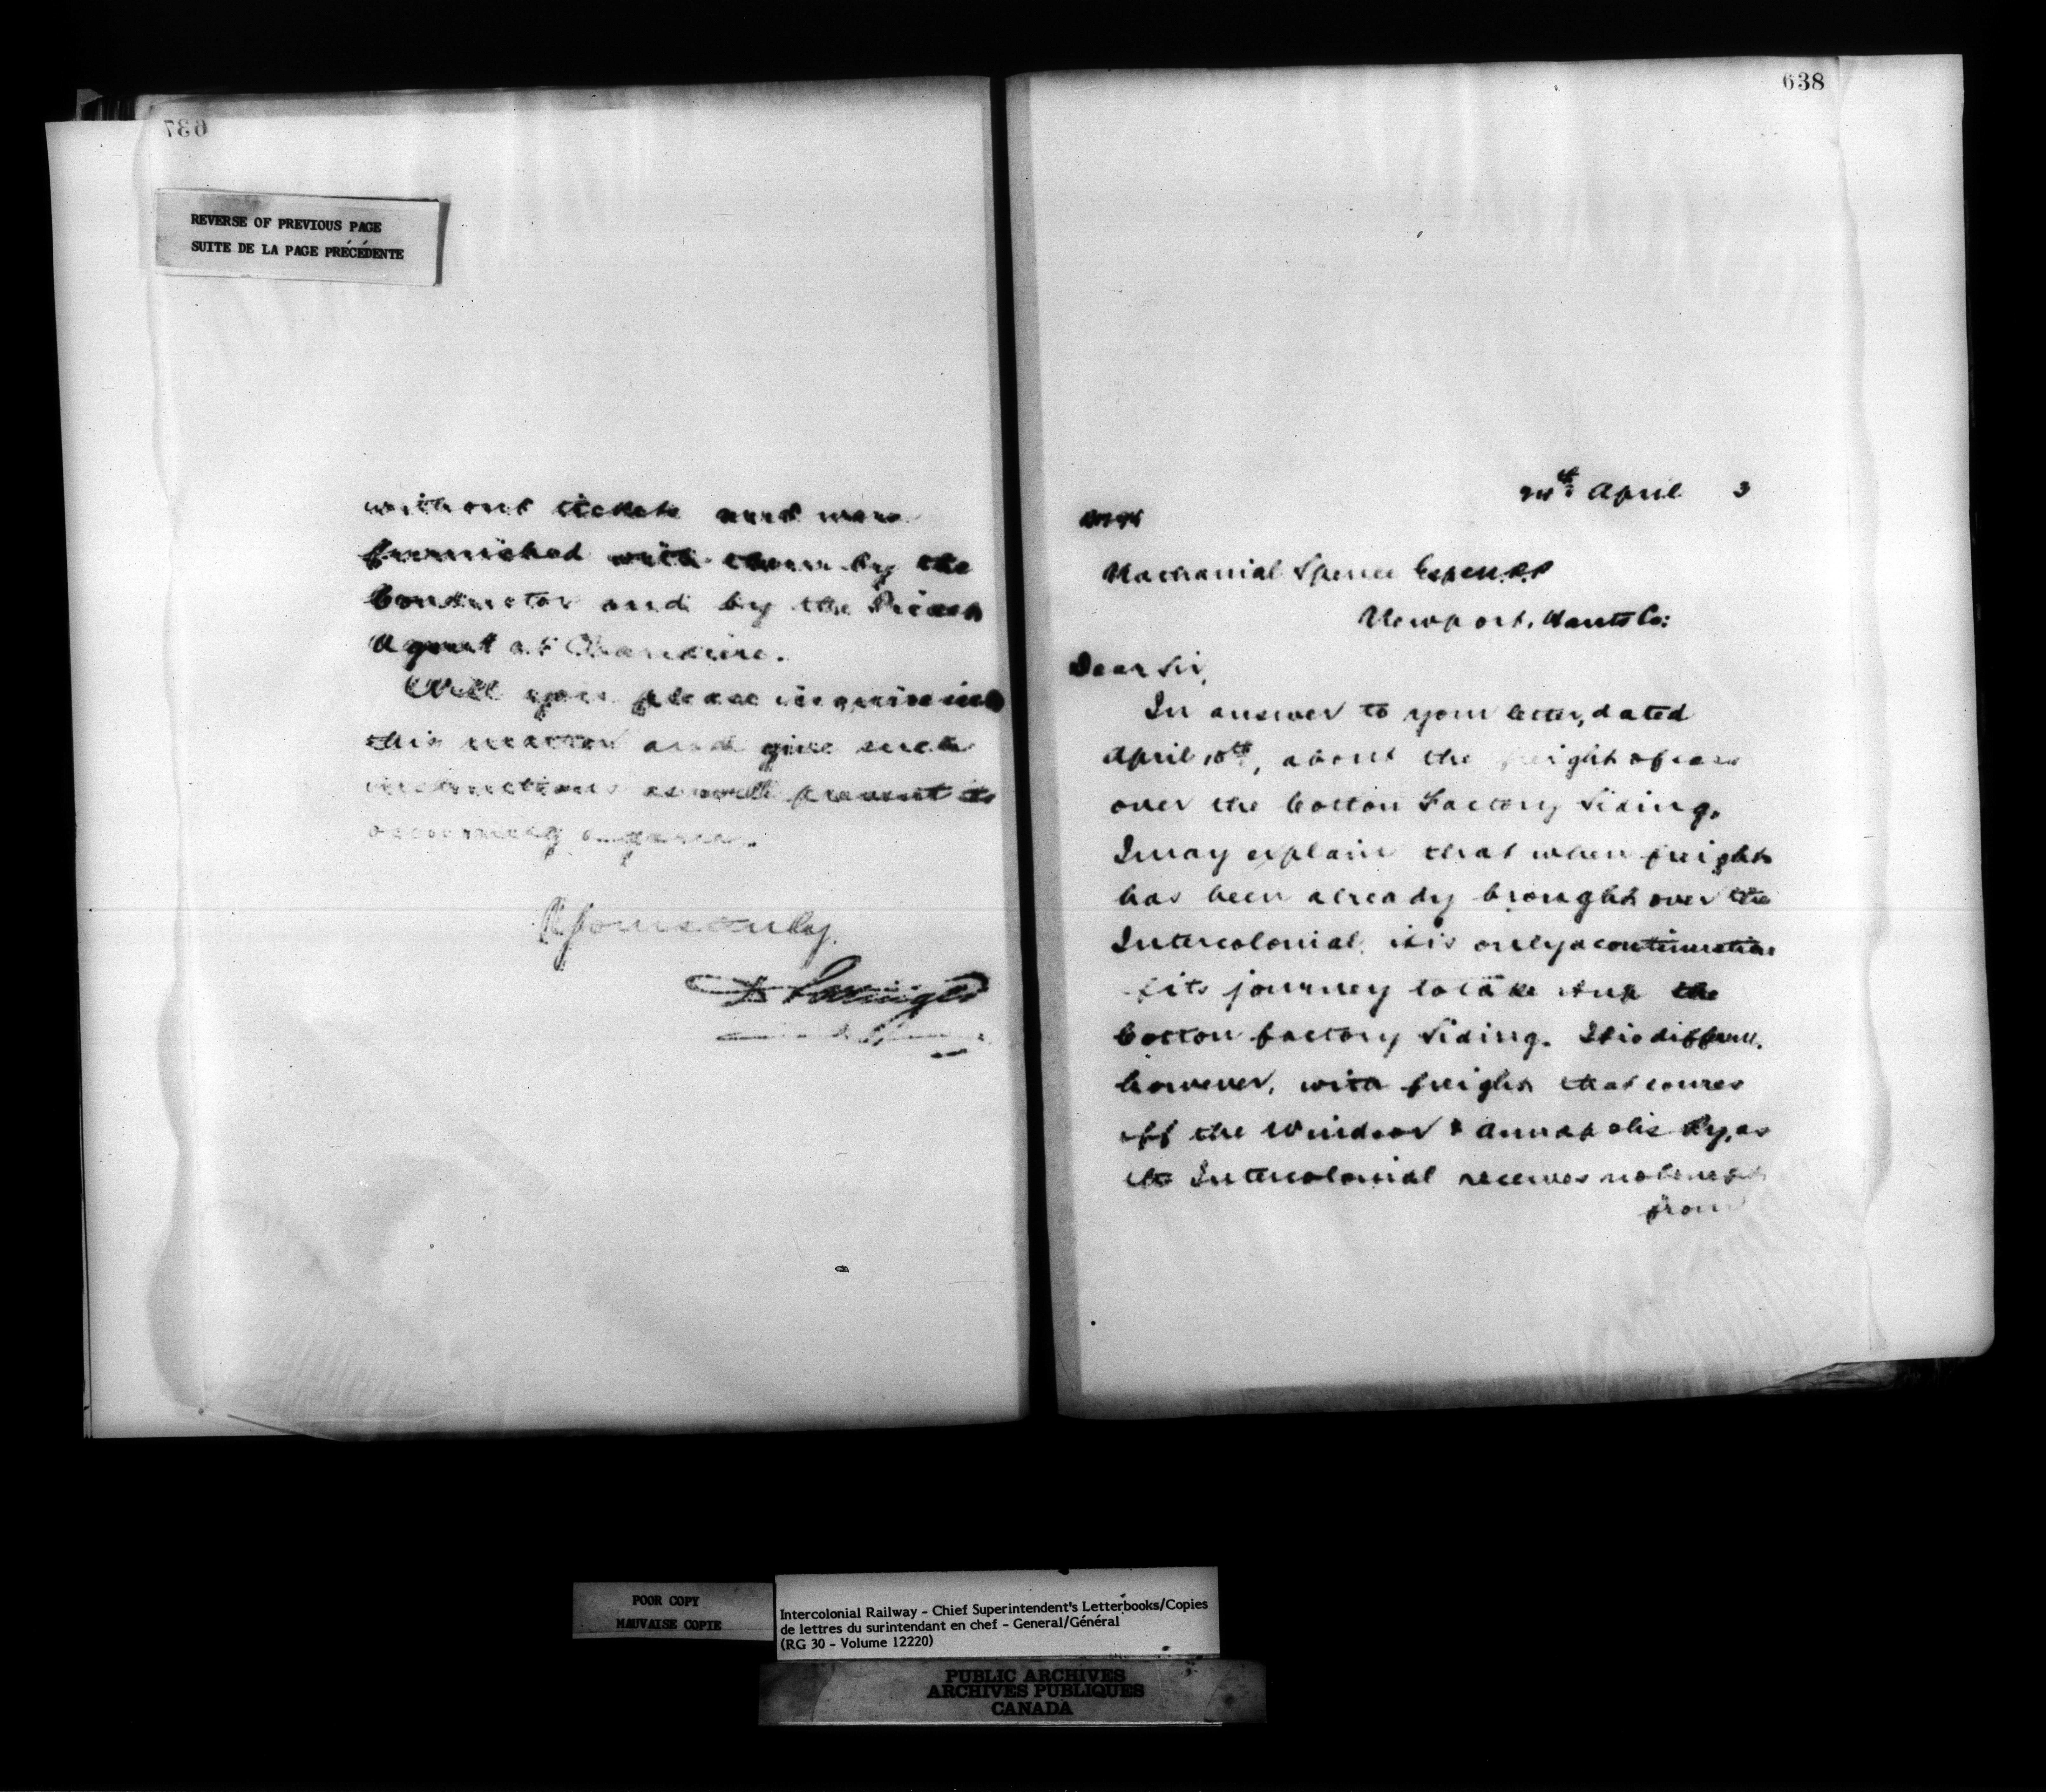 637
REVERSE OF PREVIOUS PAGE
SUITE DE LA PAGE PRÉCÉDENTE
without tickets and were
furnished with them by the
Conductor and by the
Agent at Chaudiere.
Will you please inquire into
this matter and give such
instructions as will prevent its
occurring again.
Yours truly,
D Pottinger
638
April 3
Nathanial Spence Esq
Newport, Hants Co:
Dear Sir,
In answer to your letter, dated
April 10th, about the freight of cars
over the Cotton Factory Siding.
I may explain that when freight
has been already brought over the
Intercolonial, it is only a continuation
of its journey to take it up the
Cotton factory Siding. It is different,
however, with freight that comes
off the Windsor & Annapolis Ry, as
the Intercolonial receives no benefit
from
POOR COPY
MAUVAISE COPIE
Intercolonial Railway - Chief Superintendent's Letterbooks/Copies
de lettres du surintendant en chef - General/Général
(RG 30 - Volume 12220)
PUBLIC ARCHIVES
ARCHIVES PUBLIQUES
CANADA